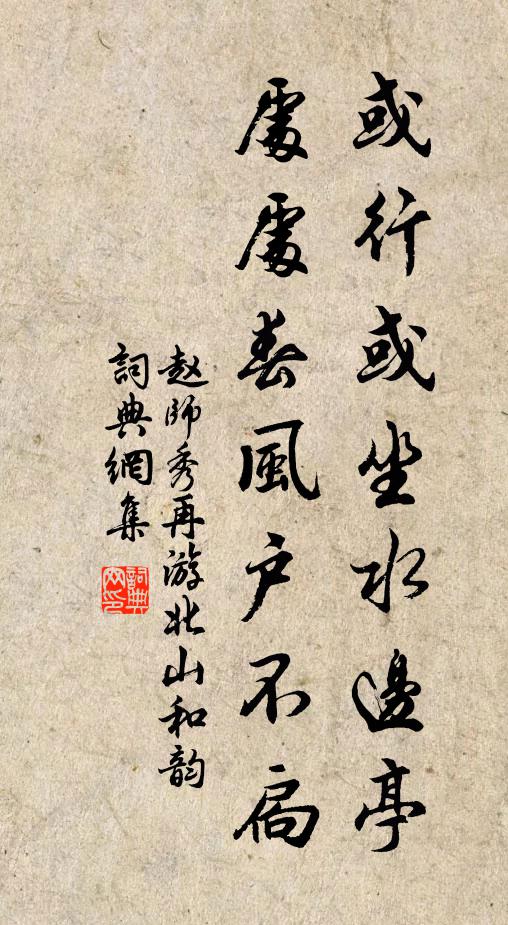 或行或坐水邊亭
處處春風户不扃
赵師秀再游北山和韵
詞典網集
詞典网印